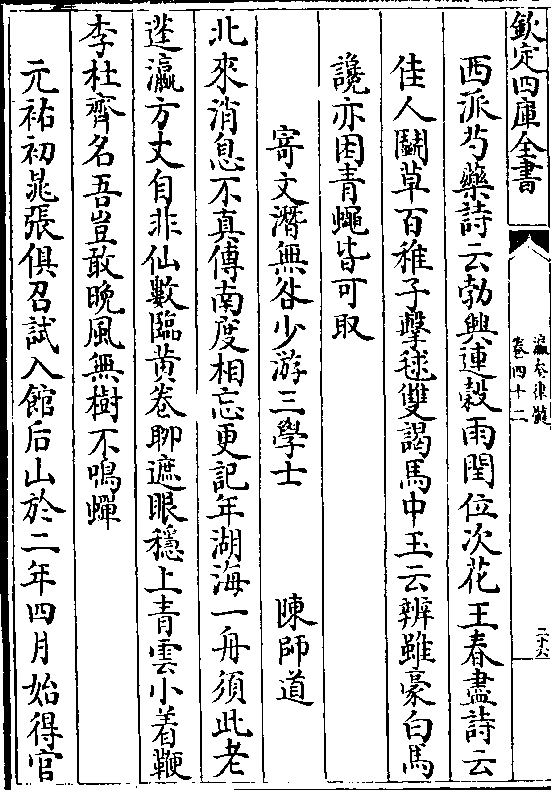 欽定四庫全書
瀛奎律髓
卷四十二
二十六
西派芍藥詩云勃興連穀雨閏位次花王春盡詩云
佳人鬬草百稚子擊毬雙謁馬中玉云辨雖豪白馬
讒亦困青蠅皆可取
寄文潛無咎少游三學士　陳師道
北來消息不真傳南度相忘更記年湖海一舟須此老
蓬瀛方丈自非仙數臨黄卷聊遮眼穩上青雲小着鞭
李杜齊名吾豈敢晩風無樹不鳴蟬
元祐初晁張俱召試入館后山於二年四月始得官